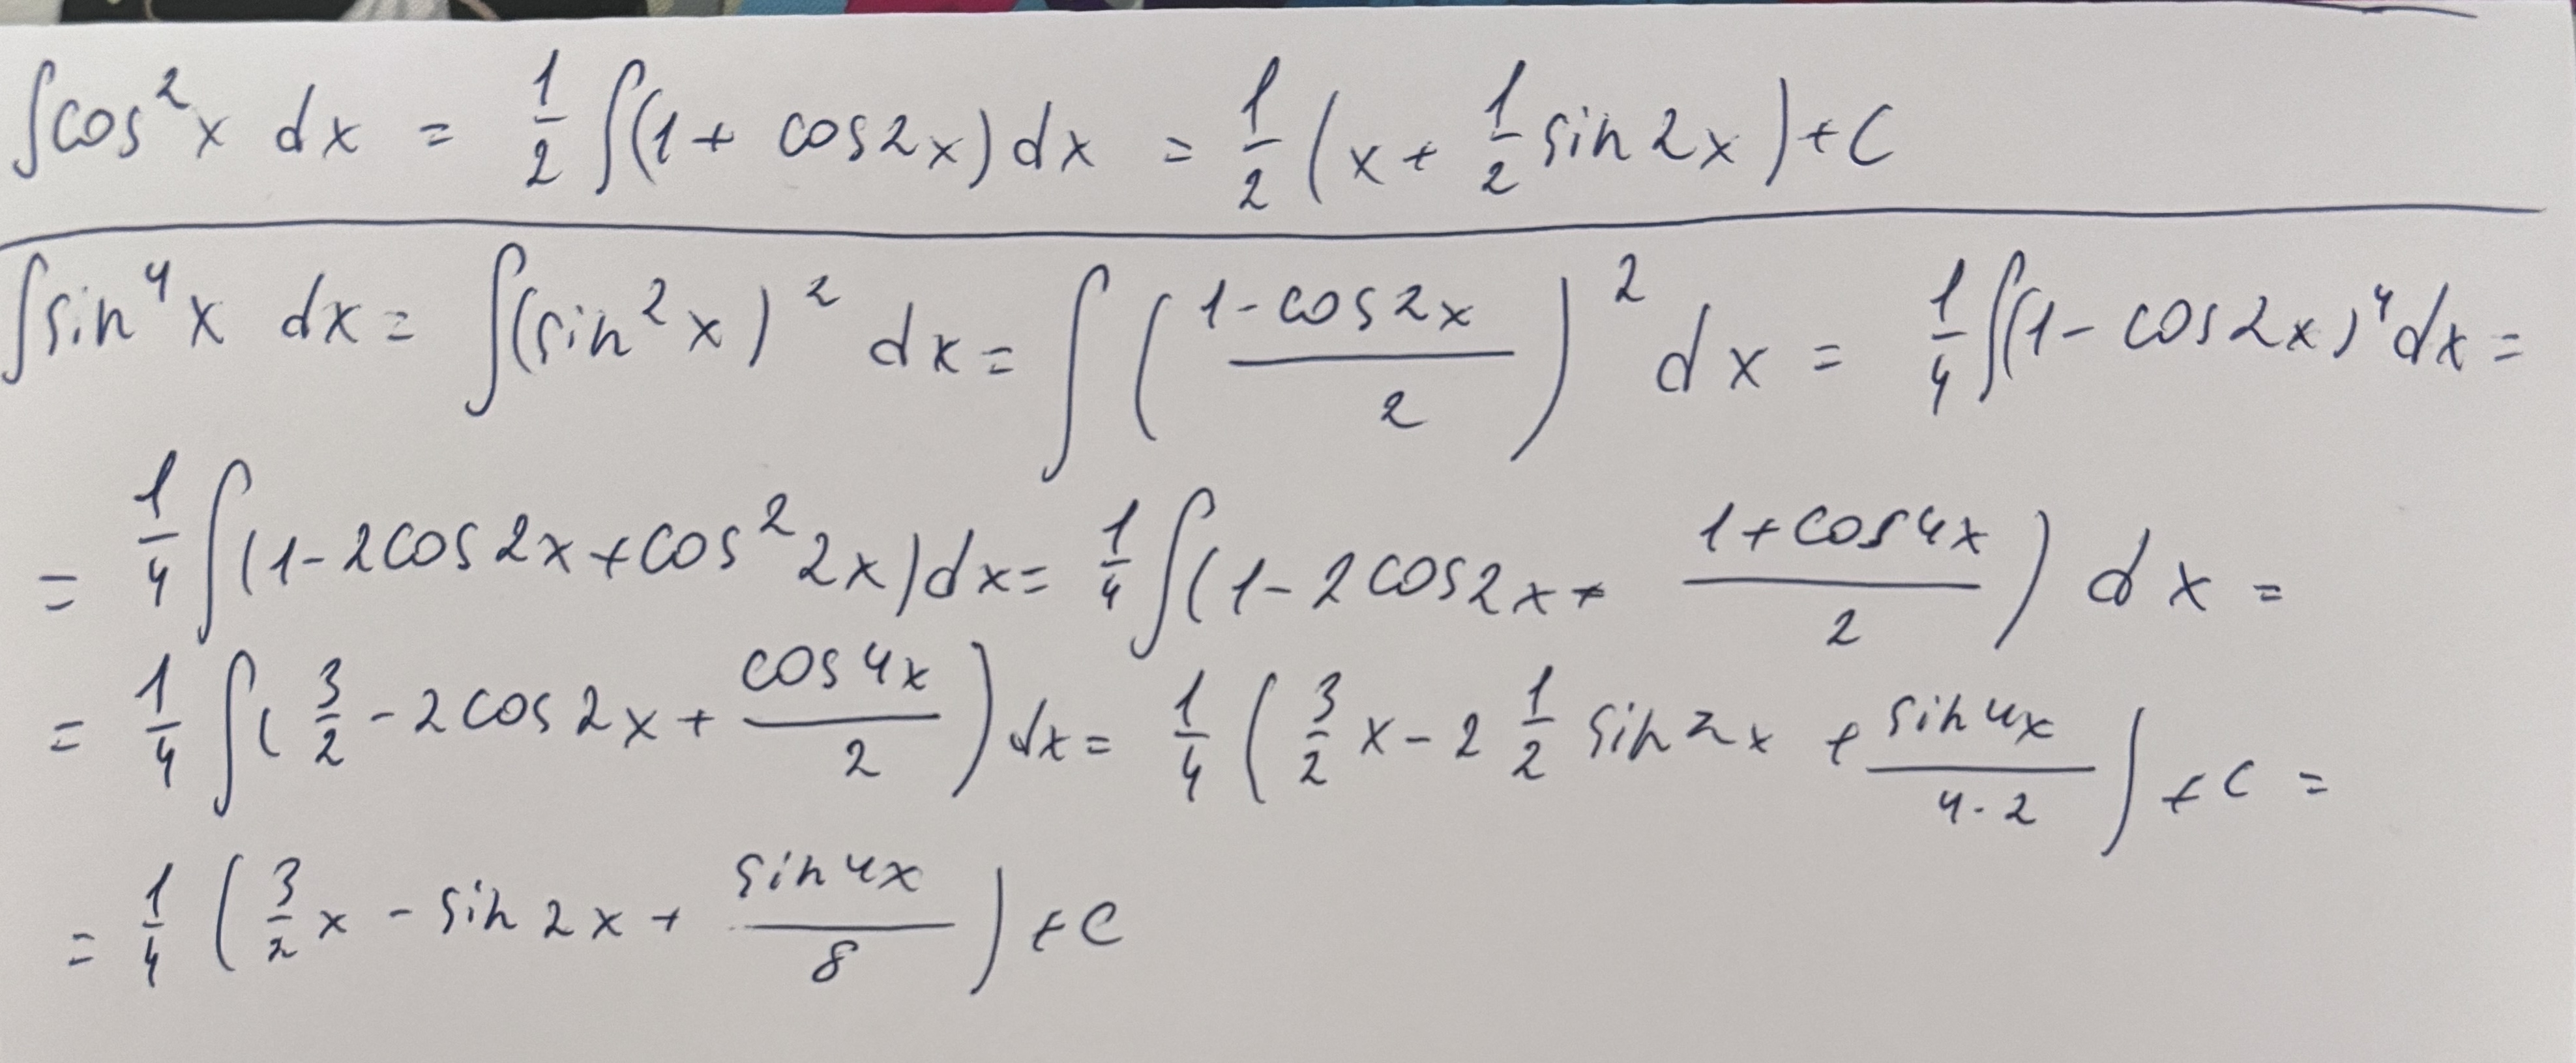 ∫cos²x dx = 1/2 ∫(1 + cos2x)dx = 1/2 (x + 1/2 sin 2x) + C
∫sin⁴x dx = ∫(sin²x)² dx = ∫((1-cos2x)/2)² dx = 1/4 ∫(1 - cos2x)⁴dx =
= 1/4 ∫(1-2cos2x+cos²2x)dx = 1/4 ∫(1-2cos2x + (1+cos4x)/2) dx =
= 1/4 ∫(3/2 - 2cos2x + cos4x/2)dx = 1/4 (3/2 x - 2 1/2 sin2x + sin4x/(4·2)) + C =
= 1/4 (3/2 x - sin 2x + sin4x/8) + C